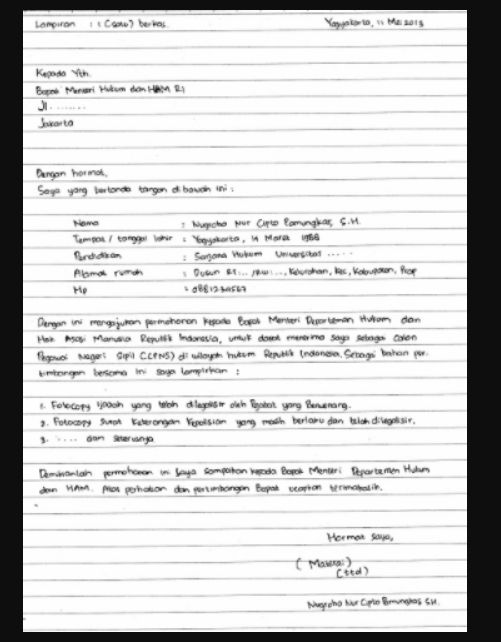 Lampiran : 1 (satu) berkas. Yogyakarta, 11 Mei 2013
Kepada Yth.
Bapak Menteri Hukum dan HAM RI
Jl. ........
Jakarta
Dengan hormat,
Saya yang bertanda tangan di bawah ini :
Nama : Nugroho Nur Cipto Pamungkas, S.H.
Tempat / tanggal lahir : Yogyakarta, 14 Maret 1988
Pendidikan : Sarjana Hukum Universitas .....
Alamat rumah : Dusun RT... /RW..., Kelurahan, Kec, Kabupaten, Prop
Hp : 0881234567
Dengan ini mengajukan permohonan kepada Bapak Menteri Departemen Hukum dan
Hak Asasi Manusia Republik Indonesia, untuk dapat menerima saya sebagai Calon
Pegawai Negeri Sipil (CPNS) di wilayah hukum Republik Indonesia, Sebagai bahan per-
timbangan bersama ini saya lampirkan :
1. Fotocopy Ijazah yang telah dilegalisir oleh Pejabat yang Berwenang.
2. Fotocopy Surat Keterangan Kepolisian yang masih berlaku dan telah dilegalisir.
3. ..... dan seterusnya
Demikianlah permohonan ini Saya Sampaikan kepada Bapak Menteri Departemen Hukum
dan HAM. Atas perhatian dan pertimbangan Bapak ucapkan terimakasih.
Hormat saya,
( Materai )
(ttd)
Nugroho Nur Cipto Pamungkas S.H.